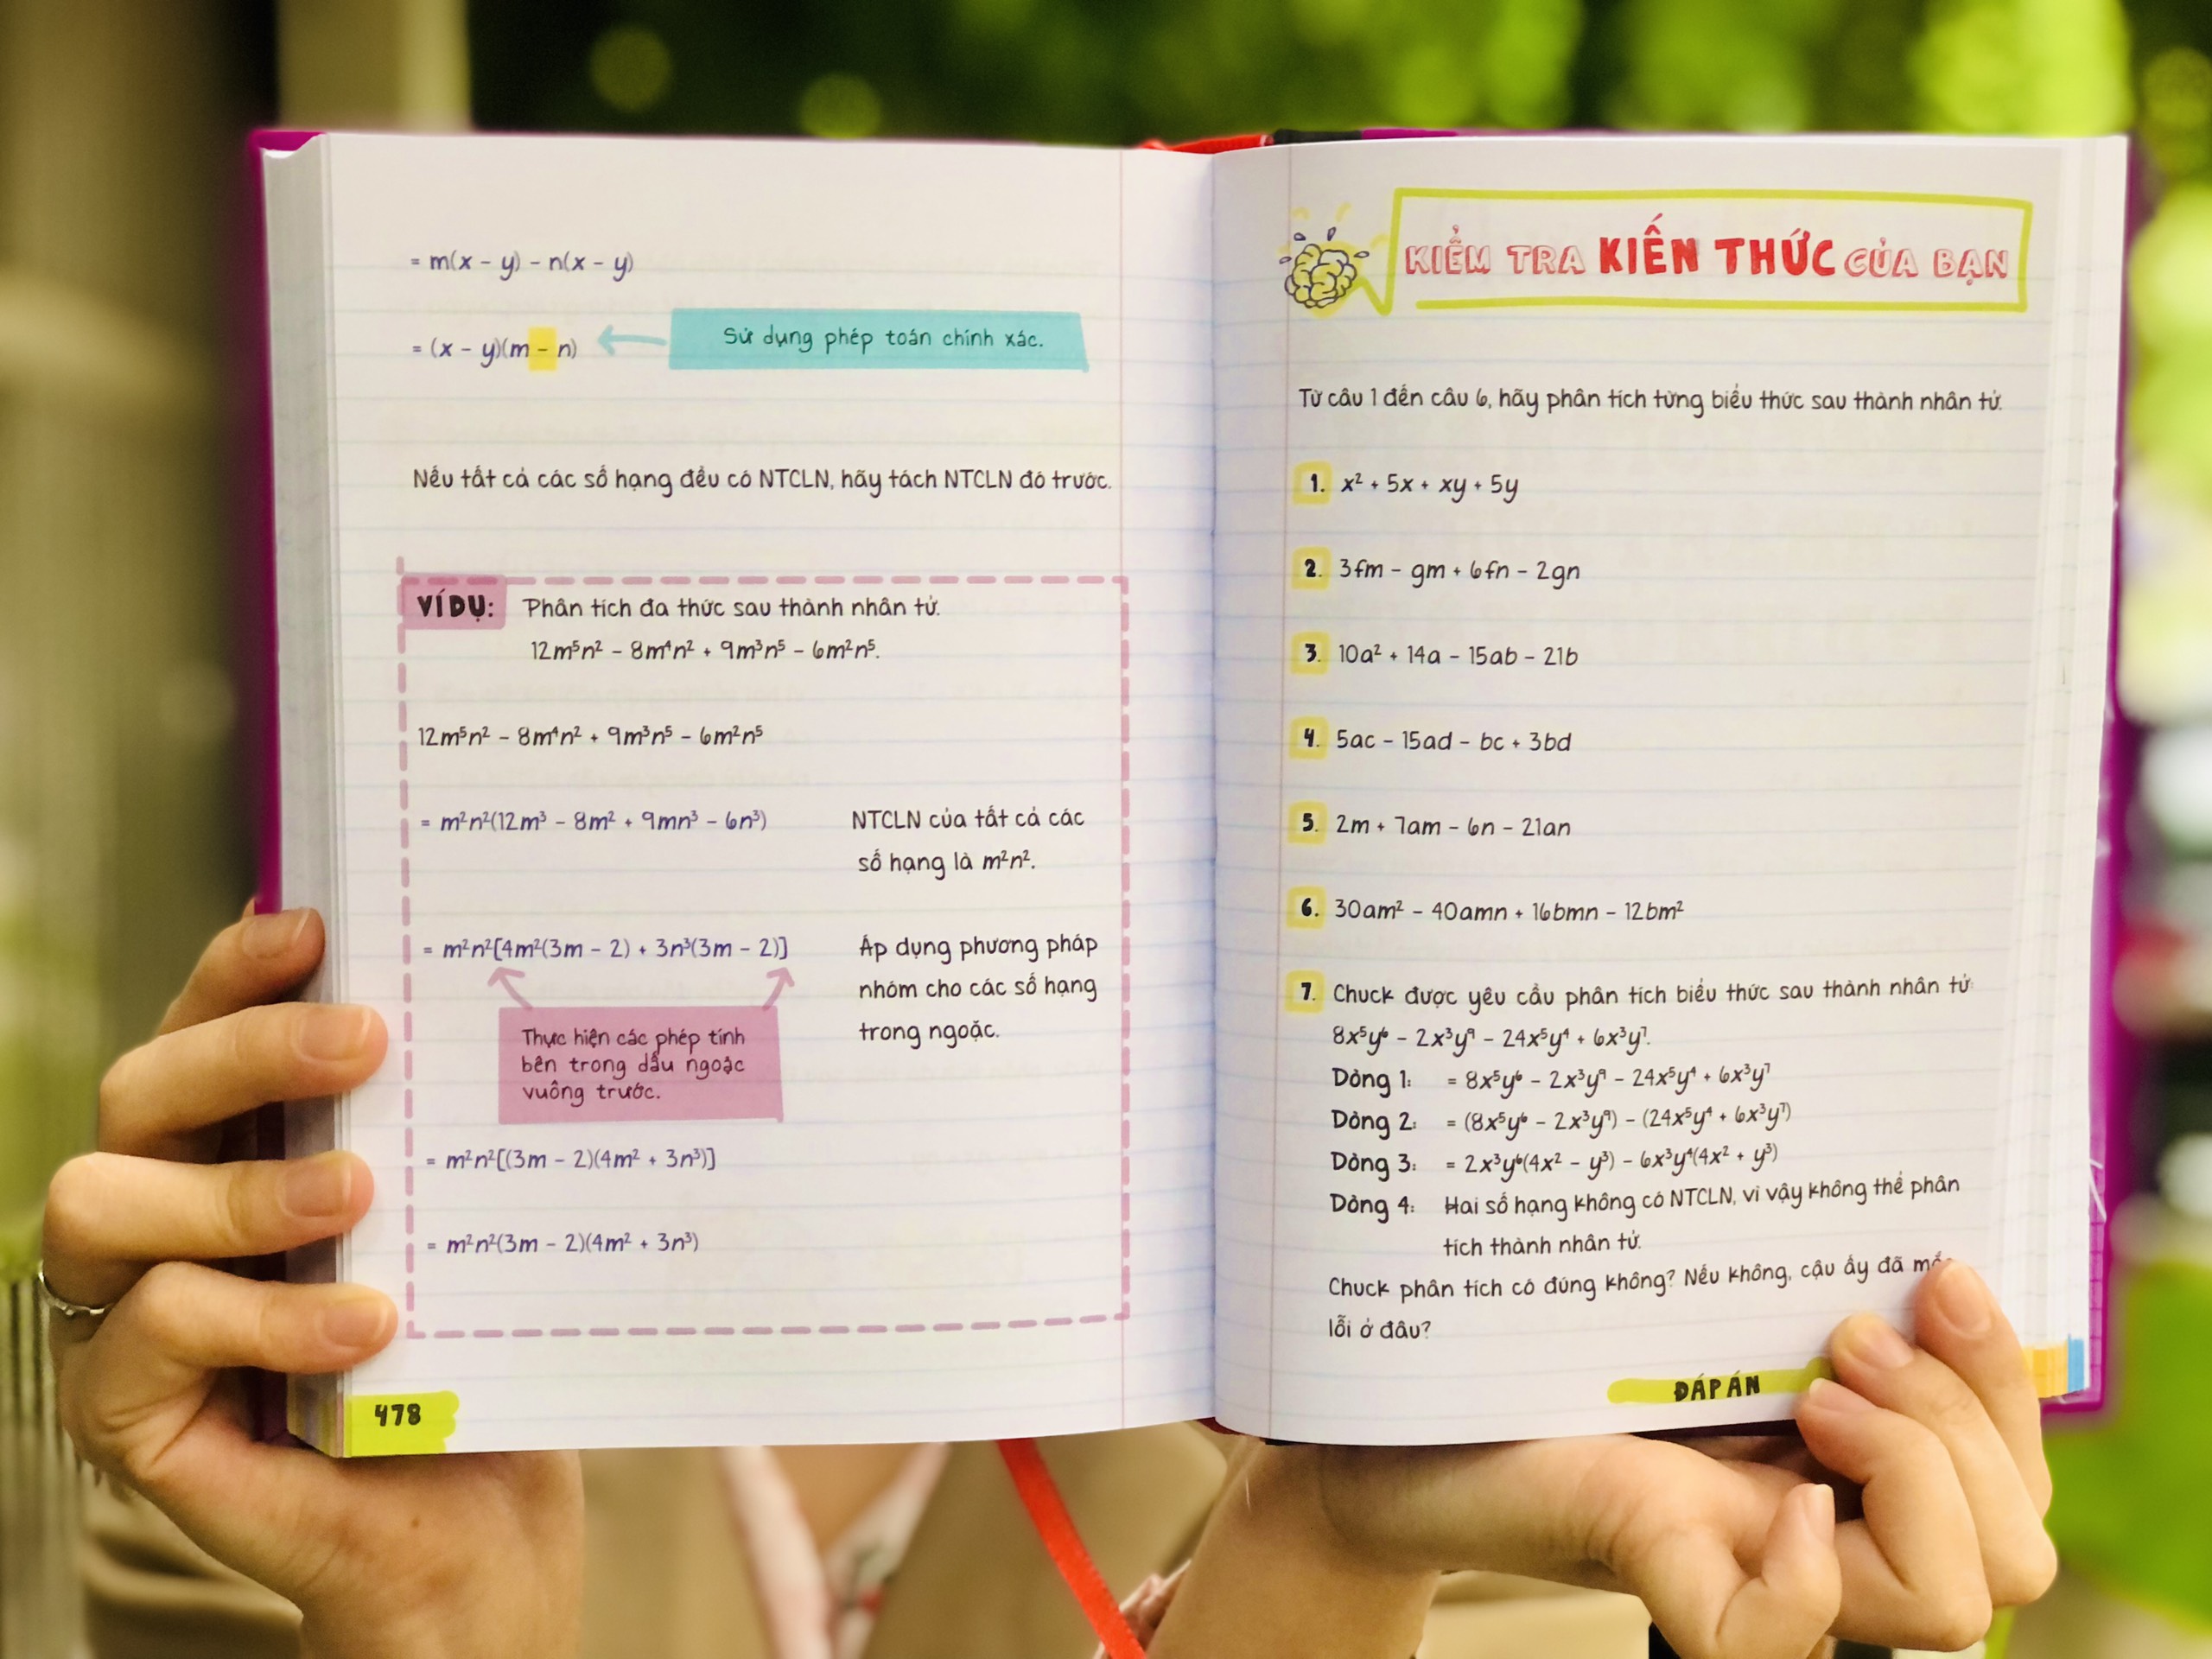 = m(x - y) - n(x - y)
= (x - y)(m - n)
Sử dụng phép toán chính xác.
Nếu tất cả các số hạng đều có NTCLN, hãy tách NTCLN đó trước.
VÍ DỤ: Phân tích đa thức sau thành nhân tử.
12m⁵n² - 8m⁴n² + 9m³n⁵ - 6m²n⁵.
12m⁵n² - 8m⁴n² + 9m³n⁵ - 6m²n⁵
= m²n²(12m³ - 8m² + 9mn³ - 6n³)
NTCLN của tất cả các
số hạng là m²n².
= m²n²[4m²(3m - 2) + 3n³(3m - 2)]
Áp dụng phương pháp
nhóm cho các số hạng
trong ngoặc.
Thực hiện các phép tính
bên trong dấu ngoặc
vuông trước.
= m²n²[(3m - 2)(4m² + 3n³)]
= m²n²(3m - 2)(4m² + 3n³)
478
KIỂM TRA KIẾN THỨC CỦA BẠN
Từ câu 1 đến câu 6, hãy phân tích từng biểu thức sau thành nhân tử.
1. x² + 5x + xy + 5y
2. 3fm - gm + 6fn - 2gn
3. 10a² + 14a - 15ab - 21b
4. 5ac - 15ad - bc + 3bd
5. 2m + 7am - 6n - 21an
6. 30am² - 40amn + 16bmn - 12bm²
7. Chuck được yêu cầu phân tích biểu thức sau thành nhân tử:
8x⁵y⁶ - 2x³y⁹ - 24x⁵y⁴ + 6x³y⁷.
Dòng 1: = 8x⁵y⁶ - 2x³y⁹ - 24x⁵y⁴ + 6x³y⁷
Dòng 2: = (8x⁵y⁶ - 2x³y⁹) - (24x⁵y⁴ + 6x³y⁷)
Dòng 3: = 2x³y⁶(4x² - y³) - 6x³y⁴(4x² + y³)
Dòng 4: Hai số hạng không có NTCLN, vì vậy không thể phân
tích thành nhân tử.
Chuck phân tích có đúng không? Nếu không, cậu ấy đã
lỗi ở đâu?
ĐÁP ÁN